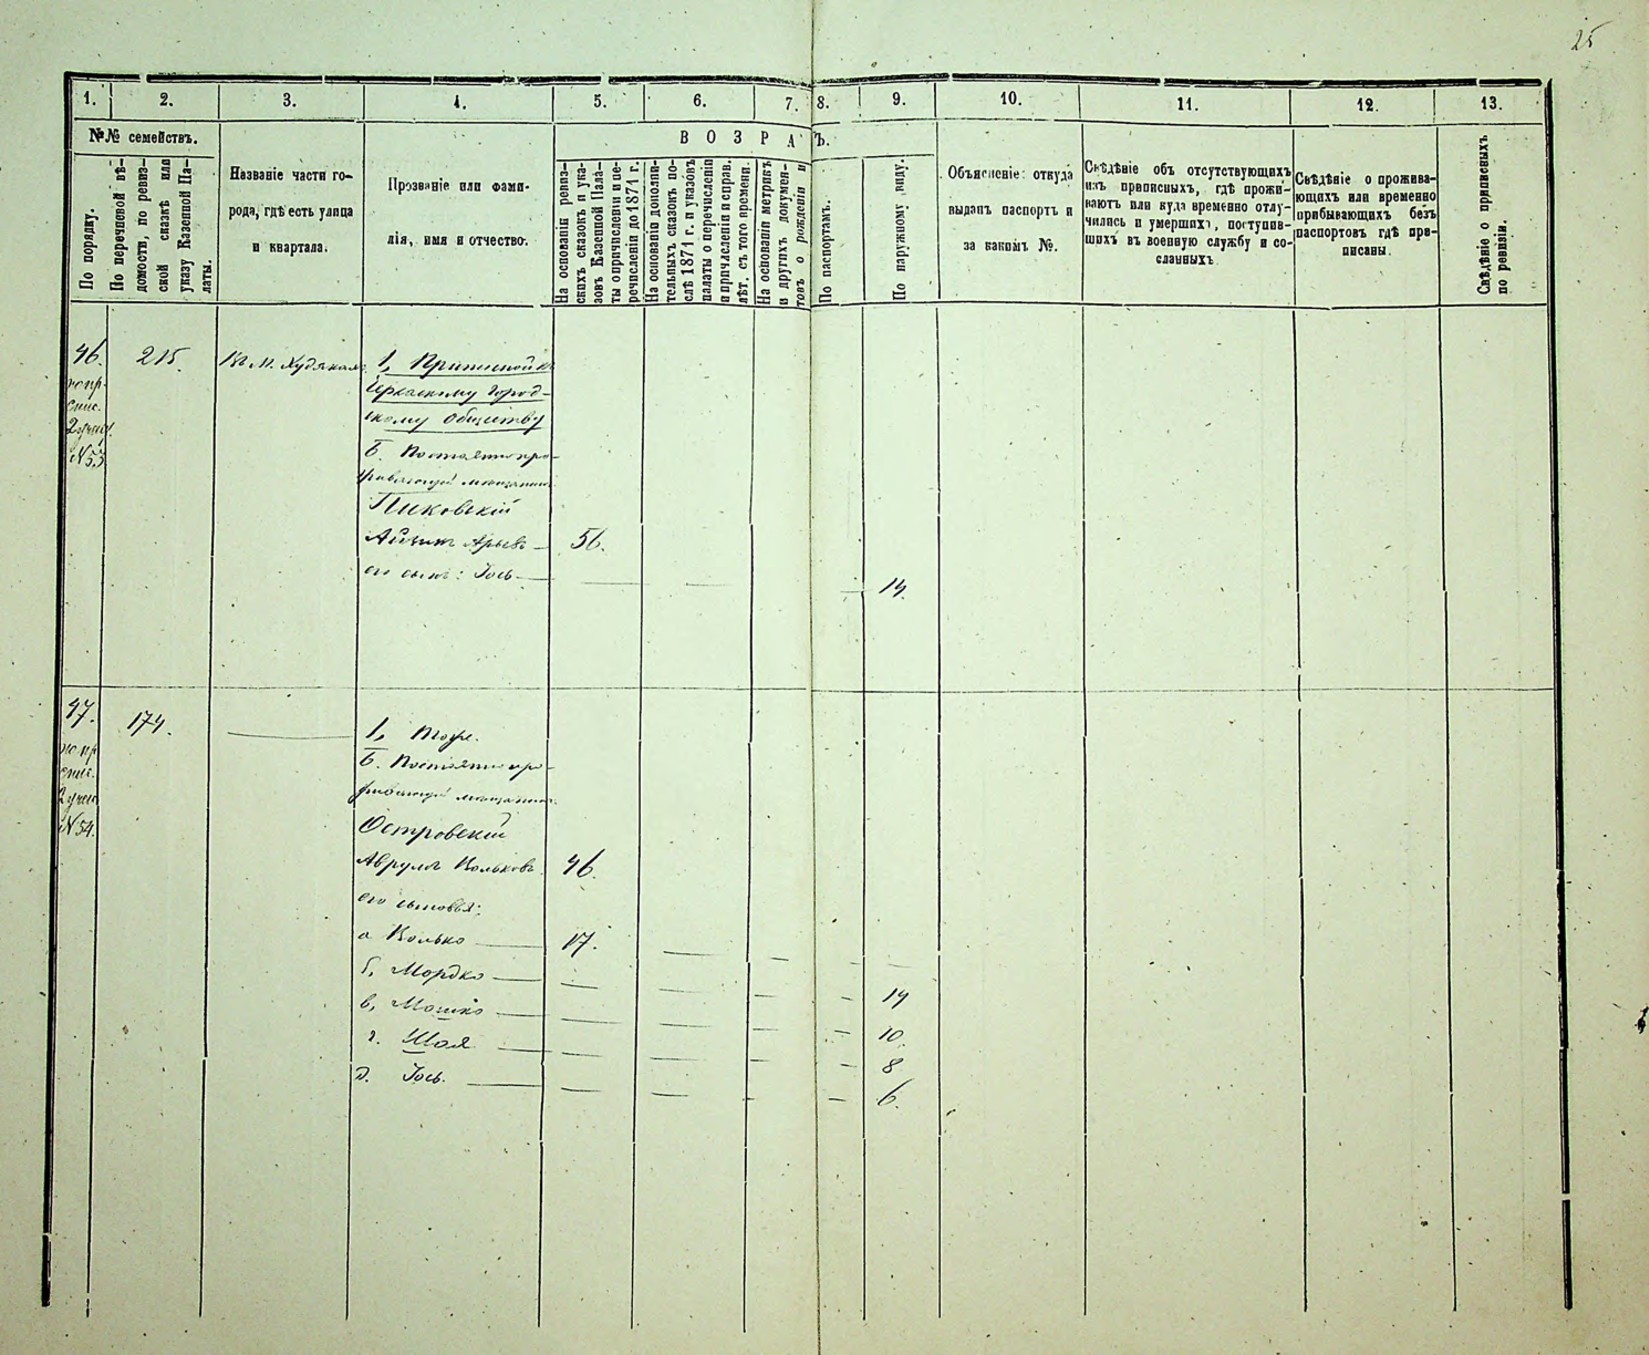 25
1. 2. 3. 4. 5. 6. 7. 8. 9. 10. 11. 12. 13.
№№ семействъ.
По порядку.
По перечневой вѣ-
домости, по ревиз-
ской сказкѣ или
указу Казенной Па-
латы.
Названіе части го-
рода, гдѣ есть улица
и квартала.
Прозваніе или фами-
лія, имя и отчество.
ВОЗРА Ъ.
На основаніи ревиз-
скихъ сказокъ и ука-
зовъ Казенной Пала-
ты о причисленіи и пе-
речисленіи до 1871 г.
На основаніи дополни-
тельныхъ сказокъ по-
слѣ 1871 г. и указовъ
палаты о перечисленіи
и причисленіи и справ.
лѣт. съ того времени.
На основаніи метрикъ
и другихъ докумен-
товъ о рожденіи и
По паспортамъ.
По наружному виду.
Объясненіе: откуда
выданъ паспортъ и
за какимъ №.
Свѣдѣніе объ отсутствующихъ
изъ приписныхъ, гдѣ прожи-
ваютъ или куда временно отлу-
чились и умершихъ, поступив-
шихъ въ военную службу и со-
сланныхъ
Свѣдѣніе о прожива-
ющихъ или временно
прибывающихъ безъ
паспортовъ гдѣ при-
писаны.
Свѣдѣніе о приписныхъ
по ревизіи.
46. 215. Въ М. Худяках. 1, Приписной къ
Черкаскому Город-
скому Обществу
по пр.
спис.
2 участ.
№53
Б. Постоянно про-
живающій мѣщанинъ
Пиковскій
Айзикъ Арьевъ — 56.
его сынъ: Іось — 14.
47. 174. — 1, Тоже.
по пр
спис.
2 участ
№54.
Б. Постоянно про-
живающій мѣщанинъ
Островскій
Аврумъ Вольковъ 46.
его сыновья:
а Волько — 17.
б, Мордко — 14
в, Мошко — 10
г. Шая — 8
д. Іось. — 6.